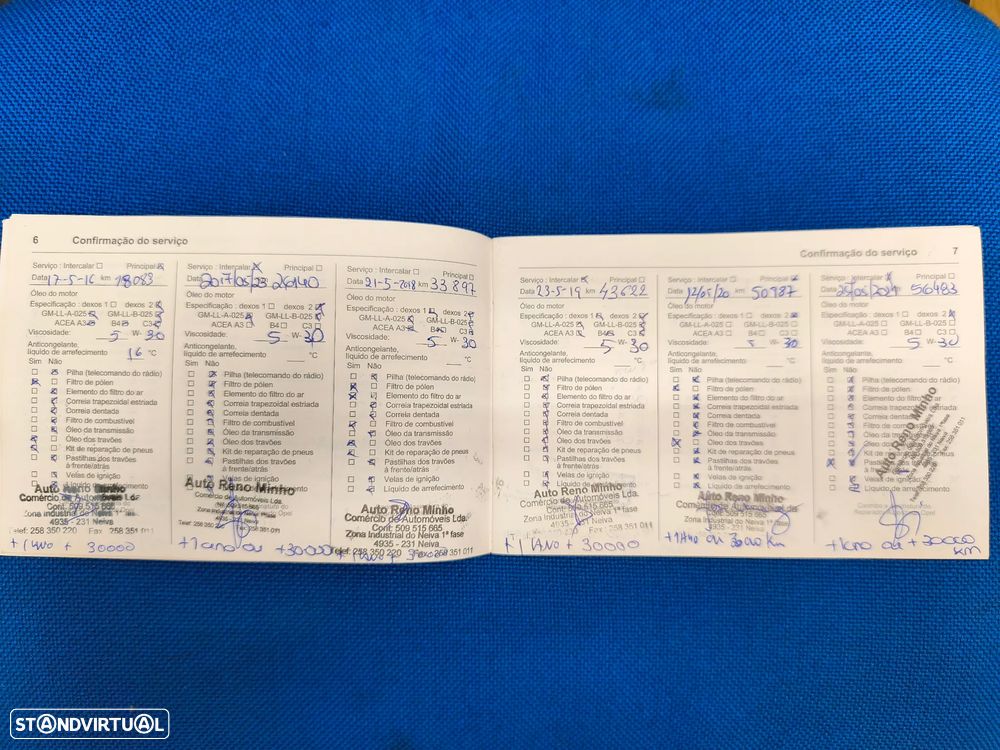 6 Confirmação do serviço
Serviço : Intercalar Principal
Data 17-5-16 km 18083
Óleo do motor
Especificação : dexos 1 dexos 2
GM-LL-A-025 GM-LL-B-025
ACEA A3 B4 C3
Viscosidade: 5 W- 30
Anticongelante,
líquido de arrefecimento 16 °C
Sim Não
Pilha (telecomando do rádio)
Filtro de pólen
Elemento do filtro do ar
Correia trapezoidal estriada
Correia dentada
Filtro de combustível
Óleo da transmissão
Óleo dos travões
Kit de reparação de pneus
Pastilhas dos travões
à frente/atrás
Velas de ignição
Líquido de arrefecimento
Auto Reno Minho
Comércio de Automóveis Lda.
Cont. 509 515 665
Zona Industrial do Neiva 1ª fase
4935 - 231 Neiva
Telef: 258 350 220 Fax 258 351 011
+ 1 ANO + 30000
Serviço : Intercalar Principal
Data 2017/05/23 26140
Óleo do motor
Especificação : dexos 1 dexos 2
GM-LL-A-025 GM-LL-B-025
ACEA A3 B4 C3
Viscosidade: 5 W- 30
Anticongelante,
líquido de arrefecimento °C
Sim Não
Pilha (telecomando do rádio)
Filtro de pólen
Elemento do filtro do ar
Correia trapezoidal estriada
Correia dentada
Filtro de combustível
Óleo da transmissão
Óleo dos travões
Kit de reparação de pneus
Pastilhas dos travões
à frente/atrás
Velas de ignição
Auto Reno Minho
Comércio de Automóveis Lda.
4935 - 231 Neiva
+ 1 ano ou + 30000
Serviço : Intercalar Principal
Data 21-5-2018 km 33 897
Óleo do motor
Especificação : dexos 1 dexos 2
GM-LL-A-025 GM-LL-B-025
ACEA A3 B4 C3
Viscosidade: 5 W- 30
Anticongelante,
líquido de arrefecimento °C
Sim Não
Pilha (telecomando do rádio)
Filtro de pólen
Elemento do filtro do ar
Correia trapezoidal estriada
Correia dentada
Filtro de combustível
Óleo da transmissão
Óleo dos travões
Kit de reparação de pneus
Pastilhas dos travões
à frente/atrás
Velas de ignição
Líquido de arrefecimento
Auto Reno Minho
Comércio de Automóveis Lda.
Cont. 509 515 665
Zona Industrial do Neiva 1ª fase
4935 - 231 Neiva
Telef: 258 350 220 Fax 258 351 011
+ 1 ANO + 30000
Confirmação do serviço 7
Serviço : Intercalar Principal
Data 23-5-19 km 43622
Óleo do motor
Especificação : dexos 1 dexos 2
GM-LL-A-025 GM-LL-B-025
ACEA A3 B4 C3
Viscosidade: 5 W- 30
Anticongelante,
líquido de arrefecimento °C
Sim Não
Pilha (telecomando do rádio)
Filtro de pólen
Elemento do filtro do ar
Correia trapezoidal estriada
Correia dentada
Filtro de combustível
Óleo da transmissão
Óleo dos travões
Kit de reparação de pneus
Pastilhas dos travões
à frente/atrás
Velas de ignição
Líquido de arrefecimento
Auto Reno Minho
Comércio de Automóveis Lda.
Cont. 509 515 665
Zona Industrial do Neiva 1ª fase
4935 - 231 Neiva
Fax 258 351 011
+ 1 ANO + 30000
Serviço : Intercalar Principal
Data 12/05/20 km 50987
Óleo do motor
Especificação : dexos 1 dexos 2
GM-LL-A-025 GM-LL-B-025
ACEA A3 B4 C3
Viscosidade: 5 W- 30
Anticongelante,
líquido de arrefecimento °C
Sim Não
Pilha (telecomando do rádio)
Filtro de pólen
Elemento do filtro do ar
Correia trapezoidal estriada
Correia dentada
Filtro de combustível
Óleo da transmissão
Óleo dos travões
Kit de reparação de pneus
Pastilhas dos travões
à frente/atrás
Velas de ignição
Líquido de arrefecimento
Auto Reno Minho
Comércio de Automóveis Lda.
Zona Industrial do Neiva 1ª fase
4935 - 231 Neiva
+ 1 Ano ou 30000 Km
Serviço : Intercalar Principal
Data 24/05/2021 56483
Óleo do motor
Especificação : dexos 1 dexos 2
GM-LL-A-025 GM-LL-B-025
ACEA A3 B4 C3
Viscosidade: 5 W- 30
Anticongelante,
líquido de arrefecimento °C
Sim Não
Pilha (telecomando do rádio)
Filtro de pólen
Elemento do filtro do ar
Correia trapezoidal estriada
Correia dentada
Filtro de combustível
Óleo da transmissão
Óleo dos travões
Kit de reparação de pneus
Pastilhas dos travões
à frente/atrás
Velas de ignição
Líquido de arrefecimento
Auto Reno Minho
+ 1 ano ou + 30000
KM
STANDVIRTUAL